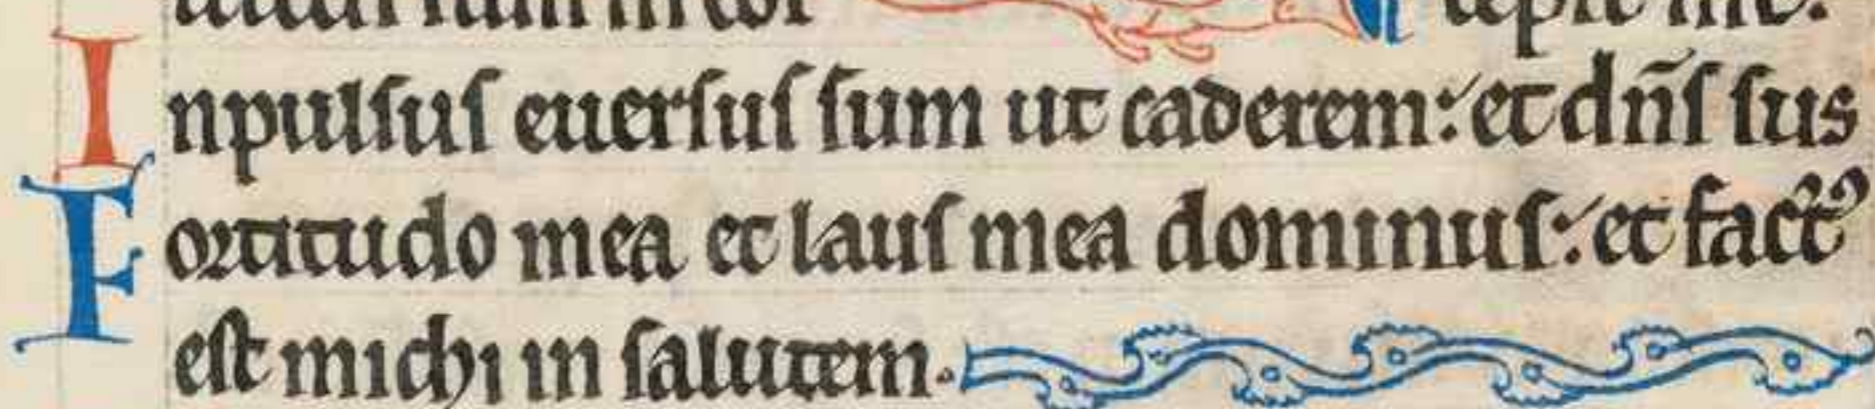 ultus sum in eos cepit me.
Inpulsus euersus sum ut caderem: et dñs sus
Fortitudo mea et laus mea dominus: et fact᷒
est michi in salutem.